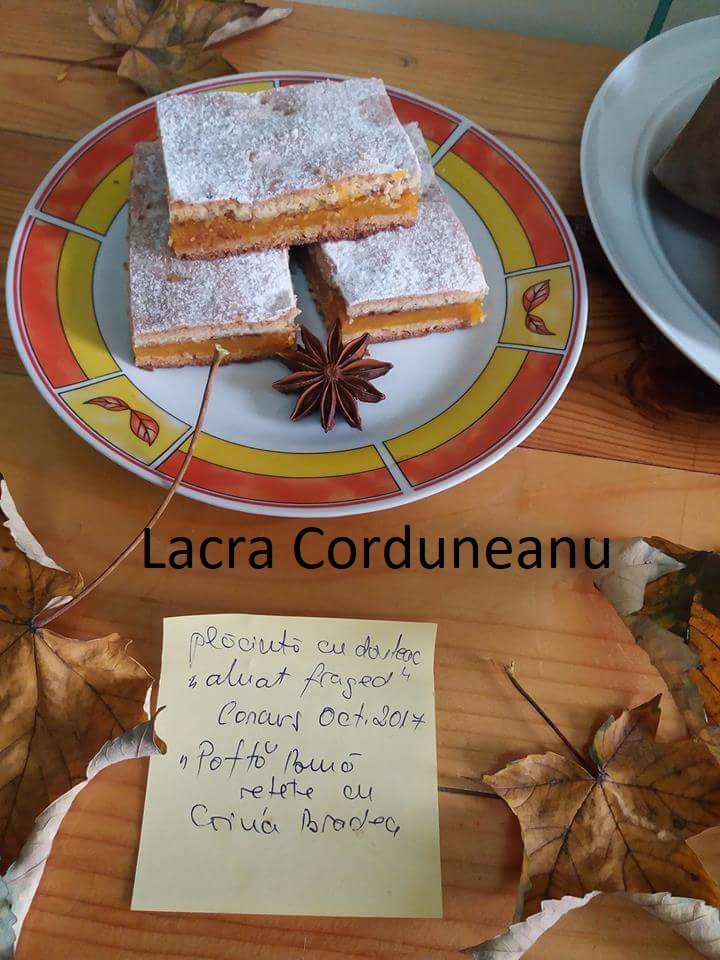 Lacra Corduneanu
plăcintă cu dovleac
"aluat fraged"
Concurs Oct. 2017
"Poftă Bună
rețete cu
Crina Bradea